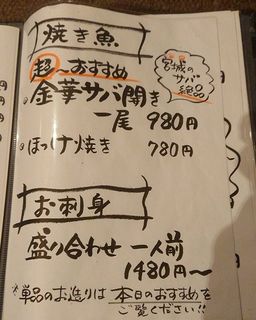 焼き魚
超〜おすすめ
金華サバ開き
一尾 980円
宮城の
サバ
絶品
ほっけ焼き 780円
お刺身
盛り合わせ 一人前
1480円〜
*単品のお造りは本日のおすすめを
ご覧ください!!